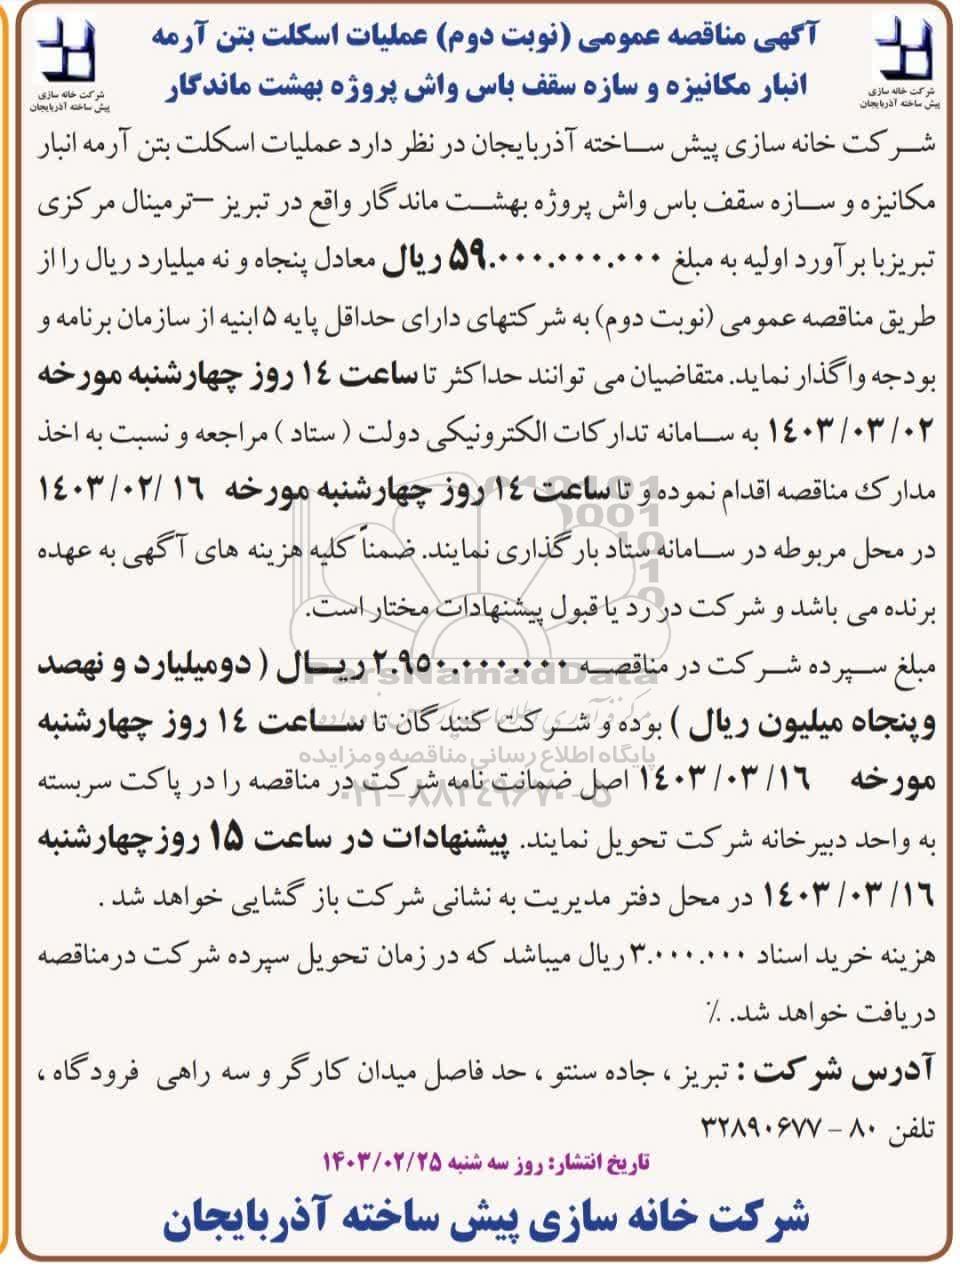 آگهی مناقصه عمومی (نوبت دوم) عملیات اسکلت بتن آرمه
انبار مکانیزه و سازه سقف باس واش پروژه بهشت ماندگار
شرکت خانه سازی
پیش ساخته آذربایجان
شرکت خانه سازی
پیش ساخته آذربایجان
شرکت خانه سازی پیش ساخته آذربایجان در نظر دارد عملیات اسکلت بتن آرمه انبار
مکانیزه و سازه سقف باس واش پروژه بهشت ماندگار واقع در تبریز –ترمینال مرکزی
تبریزبا برآورد اولیه به مبلغ ۵۹.۰۰۰.۰۰۰.۰۰۰ ریال معادل پنجاه و نه میلیارد ریال را از
طریق مناقصه عمومی (نوبت دوم) به شرکتهای دارای حداقل پایه ۵ ابنیه از سازمان برنامه و
بودجه واگذار نماید. متقاضیان می توانند حداکثر تا ساعت ۱۴ روز چهارشنبه مورخه
۱۴۰۳/۰۳/۰۲ به سامانه تدارکات الکترونیکی دولت ( ستاد ) مراجعه و نسبت به اخذ
مدارک مناقصه اقدام نموده و تا ساعت ۱۴ روز چهارشنبه مورخه ۱۴۰۳/۰۲/۱۶
در محل مربوطه در سامانه ستاد بارگذاری نمایند. ضمناً کلیه هزینه های آگهی به عهده
برنده می باشد و شرکت در رد یا قبول پیشنهادات مختار است.
مبلغ سپرده شرکت در مناقصه ۲.۹۵۰.۰۰۰.۰۰۰ ریال ( دومیلیارد و نهصد
وپنجاه میلیون ریال ) بوده و شرکت کنندگان تا ساعت ۱۴ روز چهارشنبه
مورخه ۱۴۰۳/۰۳/۱۶ اصل ضمانت نامه شرکت در مناقصه را در پاکت سربسته
به واحد دبیرخانه شرکت تحویل نمایند. پیشنهادات در ساعت ۱۵ روزچهارشنبه
۱۴۰۳/۰۳/۱۶ در محل دفتر مدیریت به نشانی شرکت باز گشایی خواهد شد .
هزینه خرید اسناد ۳.۰۰۰.۰۰۰ ریال میباشد که در زمان تحویل سپرده شرکت درمناقصه
دریافت خواهد شد. ٪
آدرس شرکت : تبریز ، جاده سنتو ، حد فاصل میدان کارگر و سه راهی فرودگاه ،
تلفن ۸۰ – ۳۲۸۹۰۶۷۷
تاریخ انتشار: روز سه شنبه ۱۴۰۳/۰۲/۲۵
شرکت خانه سازی پیش ساخته آذربایجان
ParsNamadData
پایگاه اطلاع رسانی مناقصه و مزایده
۰۲۱-۸۸۳۴۹۶۷۰-۵